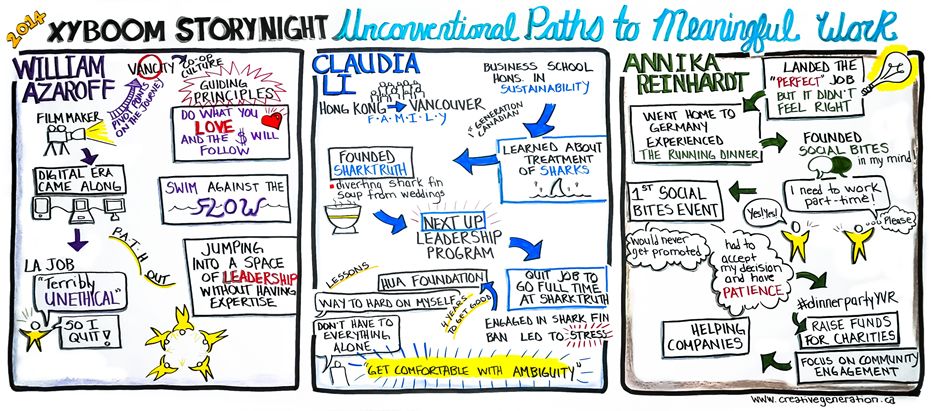 2014
XYBOOM STORYNIGHT Unconventional Paths to Meaningful Work
WILLIAM
AZAROFF
VANCITY
CO-OP
CULTURE
PIVOT POINTS
ON THE JOURNEY
GUIDING
PRINCIPLES
FILM MAKER
DO WHAT YOU
LOVE
AND THE $ WILL
FOLLOW
DIGITAL ERA
CAME ALONG
SWIM AGAINST THE
FLOW
P.A.T.H
OUT
LA JOB
"Terribly
UNETHICAL"
SO I
QUIT!
JUMPING
INTO A SPACE
OF LEADERSHIP
WITHOUT HAVING
EXPERTISE
CLAUDIA
LI
HONG KONG → VANCOUVER
F·A·M·I·L·Y
1st GENERATION
CANADIAN
BUSINESS SCHOOL
HONS. IN
SUSTAINABILITY
LEARNED ABOUT
TREATMENT
OF SHARKS
FOUNDED
SHARKTRUTH
diverting shark fin
soup from weddings
NEXT UP
LEADERSHIP
PROGRAM
QUIT JOB TO
GO FULL TIME
AT SHARKTRUTH
ENGAGED IN SHARK FIN
BAN LED TO STRESS
HUA FOUNDATION
4 YEARS
TO GET GOOD
LESSONS
WAY TO HARD ON MYSELF
DON'T HAVE TO
EVERYTHING
ALONE
"GET COMFORTABLE WITH AMBIGUITY"
ANNIKA
REINHARDT
LANDED THE
"PERFECT" JOB
BUT IT DIDN'T
FEEL RIGHT
WENT HOME TO
GERMANY
EXPERIENCED
THE RUNNING DINNER
FOUNDED
SOCIAL BITES
in my mind!
I need to work
part-time!
Yes! Yes!
Please
1ST SOCIAL
BITES EVENT
would never
get promoted
had to
accept
my decision
and have
PATIENCE
#dinnerpartyYVR
RAISE FUNDS
FOR CHARITIES
HELPING
COMPANIES
FOCUS ON COMMUNITY
ENGAGEMENT
www.creativegeneration.ca